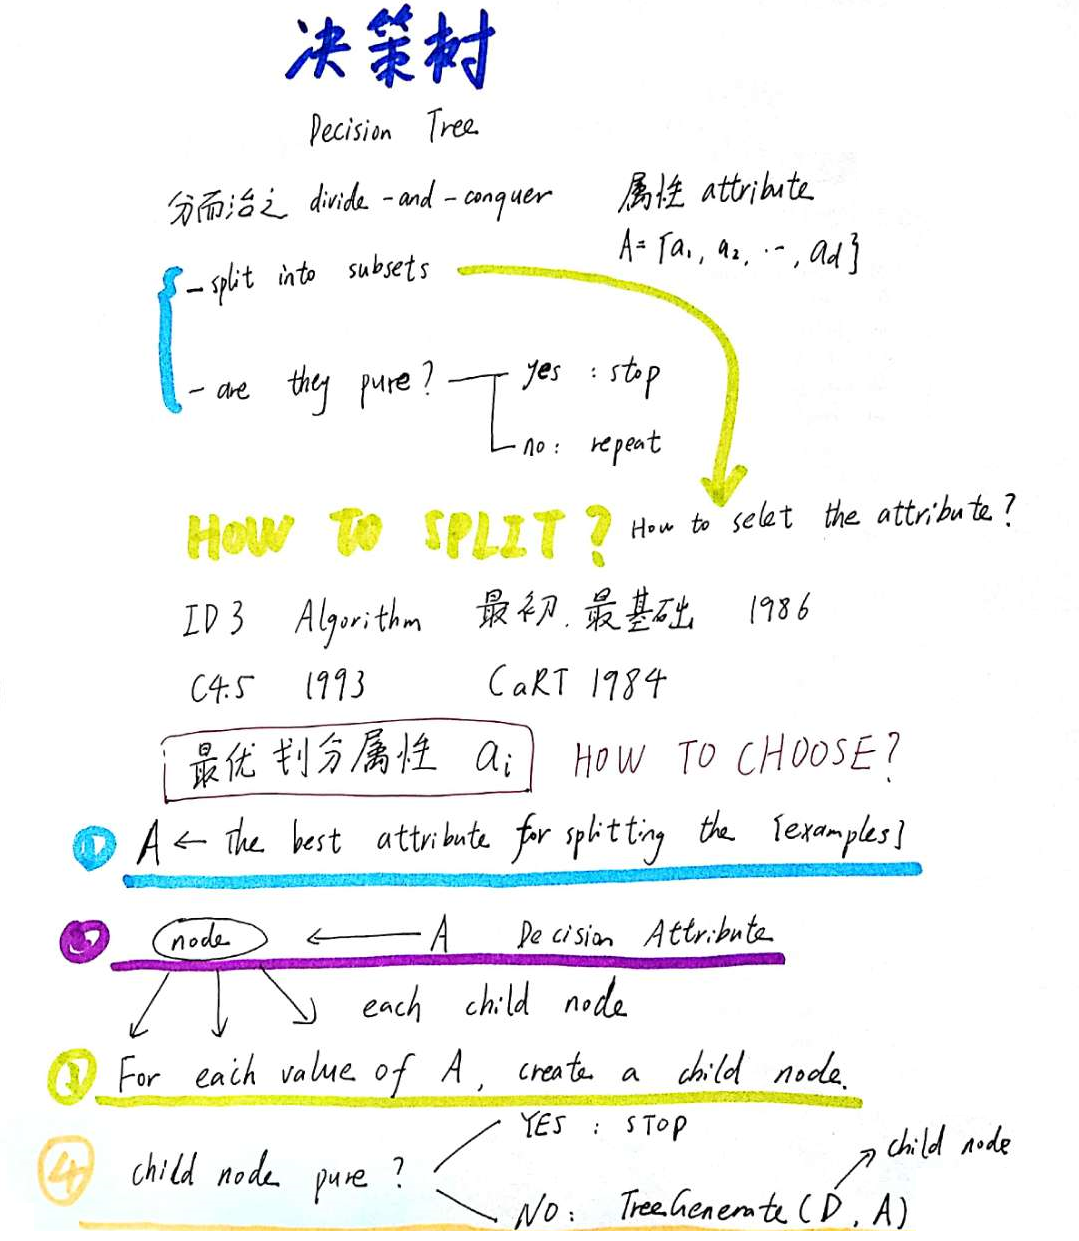 决策树
Decision Tree
分而治之 divide-and-conquer
属性 attribute
A={a₁, a₂, ..., ad}
- split into subsets
- are they pure?
yes : stop
no : repeat
HOW TO SPLIT?
How to selet the attribute?
ID3 Algorithm 最初.最基础 1986
C4.5 1993 CaRT 1984
最优划分属性 ai
HOW TO CHOOSE?
① A ← The best attribute for splitting the {examples}
② node ← A Decision Attribute
each child node
③ For each value of A, create a child node.
④ child node pure?
YES : STOP
NO : TreeGenerate(D, A)
child node